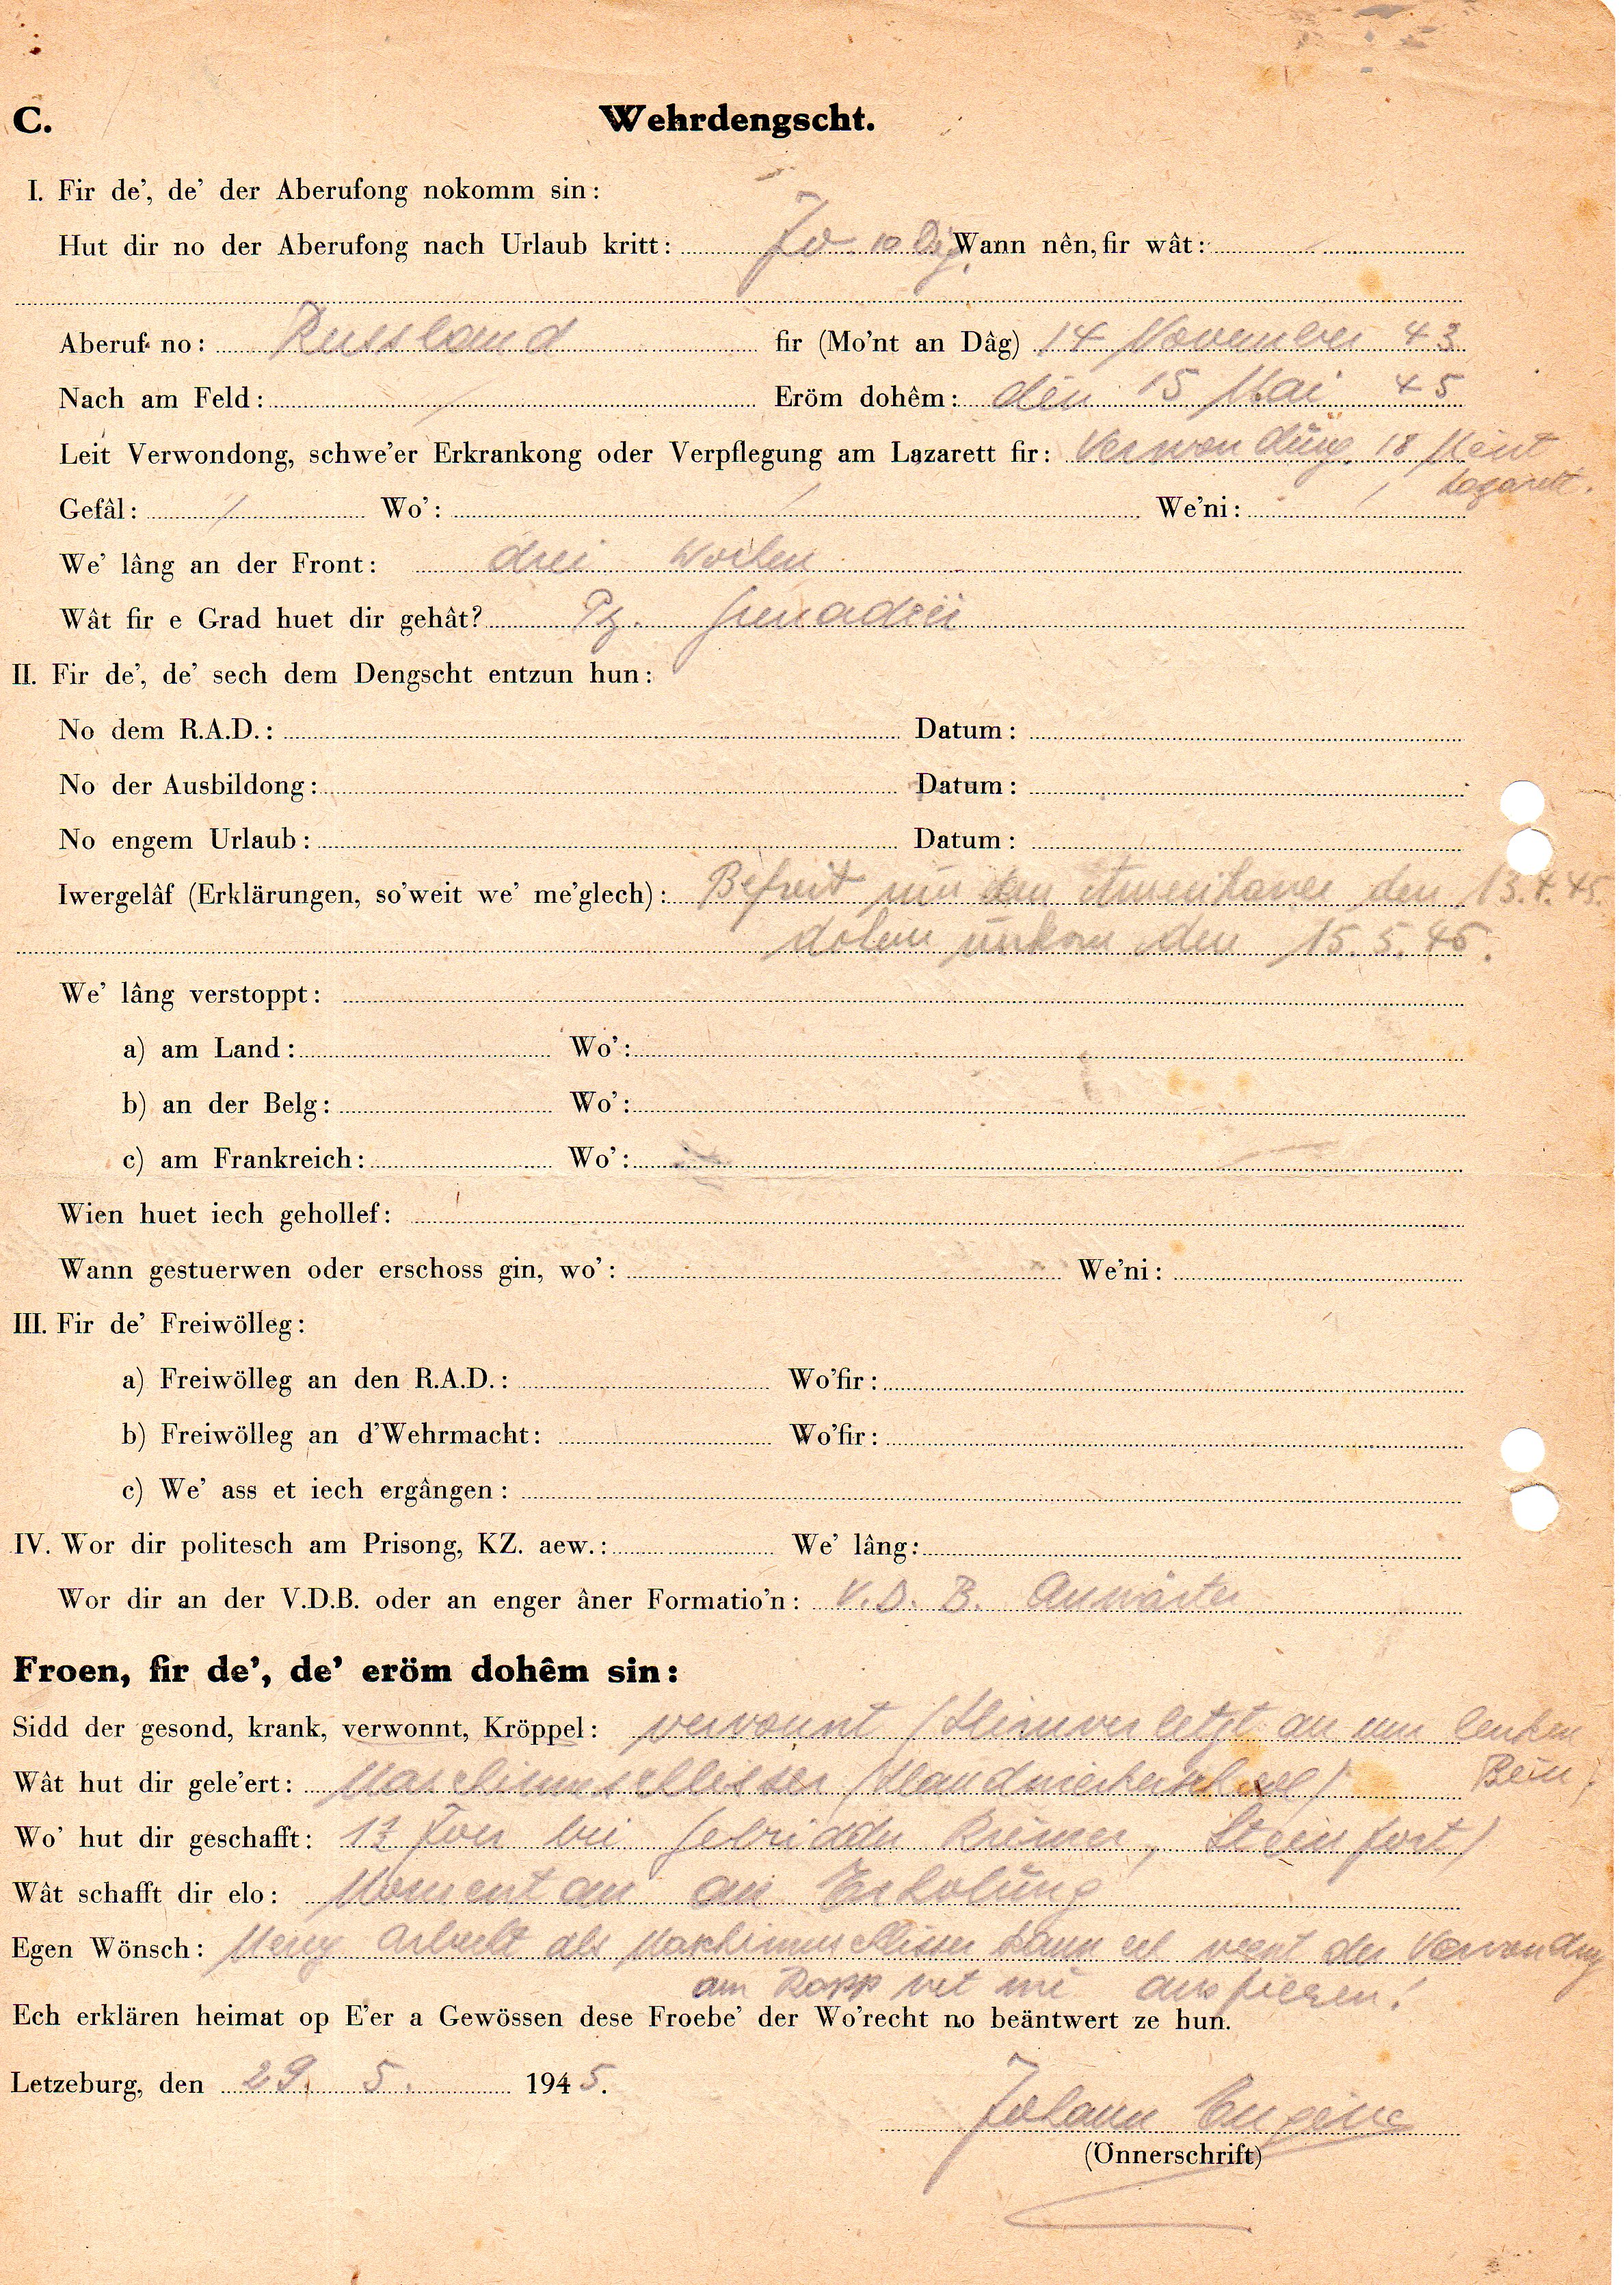 C. Wehrdengscht.
I. Fir de', de' der Aberufong nokomm sin:
Hut dir no der Aberufong nach Urlaub kritt: Jo 10 Dig. Wann nên, fir wât:
Aberuf no: Russland fir (Mo'nt an Dâg) 14 November 43
Nach am Feld: / Eröm dohêm: den 15 Mai 45
Leit Verwondong, schwe'er Erkrankong oder Verpflegung am Lazarett fir: Verwondung, 18 Ment
Lazarett.
Gefâl: / Wo': / We'ni: /
We' lâng an der Front: drei Wochen
Wât fir e Grad huet dir gehât? Pz. Grenadéi
II. Fir de', de' sech dem Dengscht entzun hun:
No dem R.A.D.: Datum:
No der Ausbildong: Datum:
No engem Urlaub: Datum:
Iwergelâf (Erklärungen, so'weit we' me'glech): Befreit den Amerikaner den 13.4.45.
dohem unkom den 15.5.45.
We' lâng verstoppt:
a) am Land: Wo':
b) an der Belg: Wo':
c) am Frankreich: Wo':
Wien huet iech gehollef:
Wann gestuerwen oder erschoss gin, wo': We'ni:
III. Fir de' Freiwölleg:
a) Freiwölleg an den R.A.D.: Wo'fir:
b) Freiwölleg an d'Wehrmacht: Wo'fir:
c) We' ass et iech ergângen:
IV. Wor dir politesch am Prisong, KZ. aew.: We' lâng:
Wor dir an der V.D.B. oder an enger âner Formatio'n: V.D.B. Anwärter
Froen, fir de', de' eröm dohêm sin:
Sidd der gesond, krank, verwonnt, Kröppel: verwonnt (Hirnverletzt an um lenken
Bein)
Wât hut dir gele'ert: Maschinneschlösser (Handwierkerschoul)
Wo' hut dir geschafft: Joer bei Gebridder Kremer, Steinfort)
Wât schafft dir elo: Momentan an Erholung
Egen Wönsch: Meng Arbecht als Maschinneschlösser kann ech weent der Verwondng
am Kopp net mi ausfieren!
Ech erklären heimat op E'er a Gewössen dese Froebe' der Wo'recht no beäntwert ze hun.
Letzeburg, den 29. 5. 1945.
Johann Eugène
(Onnerschrift)